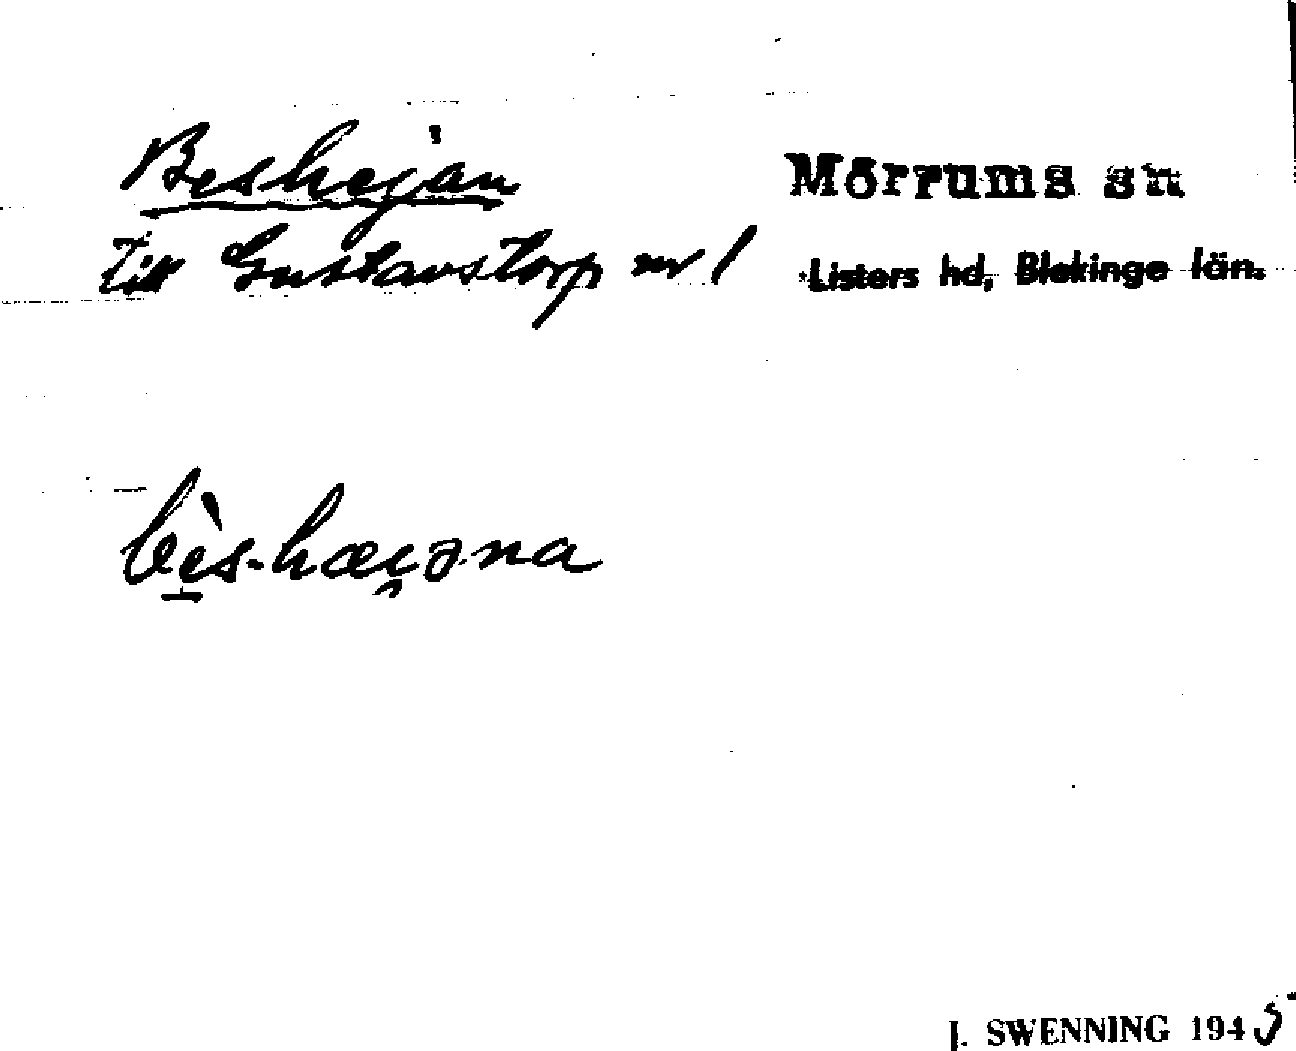 Beshejan
Mörrums sn
till Gustavstorp nr 1
Listers hd, Blekinge län.
bès-hæi̯əna
J. SWENNING 1945